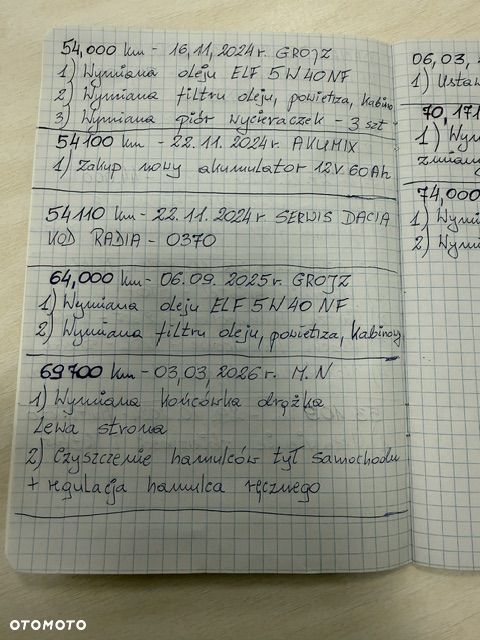 54,000 km - 16,11,2024 r. GROJZ
1) Wymiana oleju ELF 5W40NF
2) Wymiana filtru oleju, powietrza, kabino
3) Wymiana piór wycieraczek - 3 szt
54100 km - 22.11.2024 r. AKUMIX
1) Zakup nowy akumulator 12V 60Ah
54110 km - 22.11.2024 r SERWIS DACIA
KOD RADIA - 0370
64,000 km - 06.09.2025 r. GROJZ
1) Wymiana oleju ELF 5W40 NF
2) Wymiana filtru oleju, powietrza, kabinowy
69700 km - 03,03,2026 r. M.N
1) Wymiana końcówka drążka
Lewa strona
2) Czyszczenie hamulców tył samochodu
+ regulacja hamulca ręcznego
06,03,
1) Ustaw
70,171
1) Wym
zmiany
74,000
1) Wymi
2) Wymi
OTOMOTO